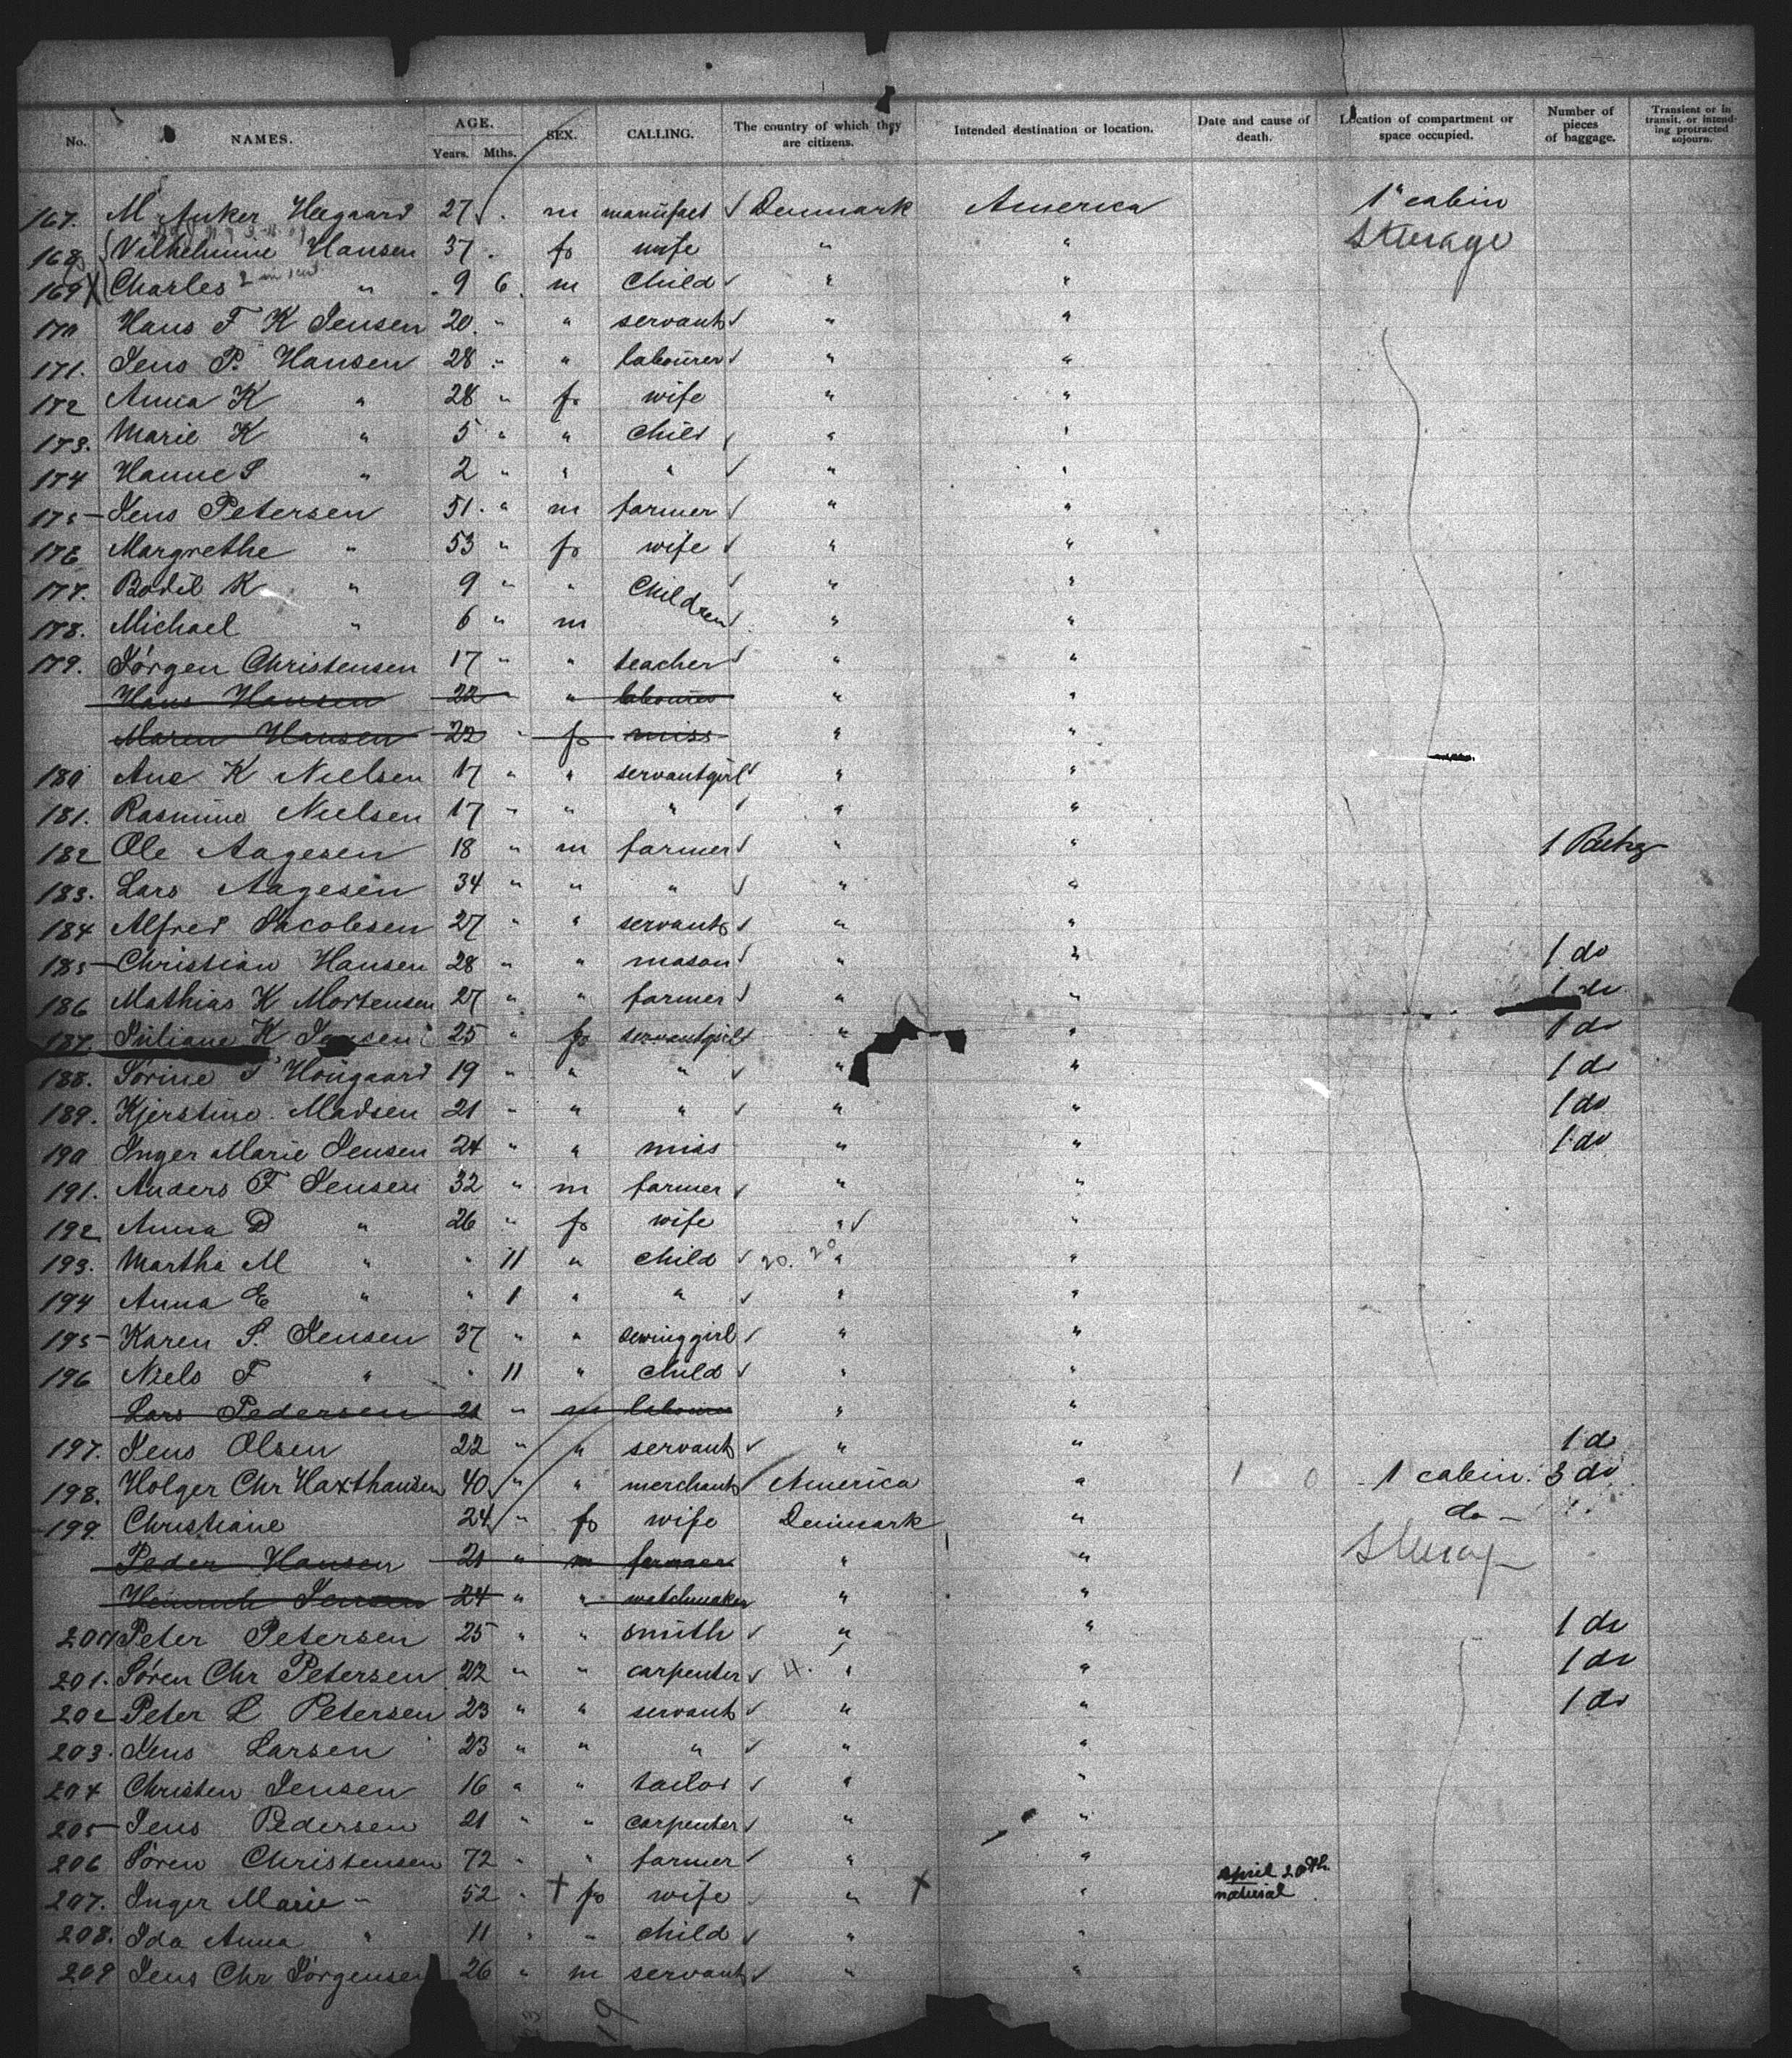 No. NAMES. AGE. Years. Mths. SEX. CALLING. The country of which they are citizens. Intended destination or location. Date and cause of death. Location of compartment or space occupied. Number of pieces of baggage. Transient or in transit, or intending protracted sojourn.
167. M Anker Heegaard 27 . m manufact ✓ Denmark America 1" cabin
168 Vilhelmine Hansen 37 . f wife " " Sterage
169 X Charles " 9 6 m Child ✓ " "
170 Hans F K Jensen 20 " " servant ✓ " "
171. Jens P. Hansen 28 " " labourer ✓ " "
172 Anna K " 28 " f wife " "
173. Marie K " 5 " " Child " "
174 Hanne S " 2 " " " ✓ " "
175 Jens Petersen 51 " m farmer ✓ " "
176 Margrethe " 53 " f wife ✓ " "
177. Bodil K " 9 " " Children ✓ " "
178. Michael " 6 " m ✓ " "
179. Jørgen Christensen 17 " " teacher ✓ " "
Hans Hansen 22 " " labourer " "
Maren Hansen 22 " f miss " "
180 Ane K Nielsen 17 " " servantgirl ✓ " "
181. Rasmine Nielsen 17 " " " ✓ " "
182 Ole Aagesen 18 " m farmer ✓ " "
183. Lars Aagesen 34 " " " ✓ " "
184 Alfred Jacobsen 27 " " servant ✓ " "
185 Christian Hansen 28 " " mason ✓ " " 1 do
186 Mathias K Mortensen 27 " " farmer ✓ " " 1 do
187. Juliane K Jensen 25 " f servantgirl ✓ " " 1 do
188. Sørine Hougaard 19 " " " ✓ " " 1 do
189. Kjerstine Madsen 21 " " " ✓ " " 1 do
190 Inger Marie Jensen 24 " " miss " " 1 do
191. Anders F Jensen 32 " m farmer ✓ " "
192 Anna D " 26 " f wife " ✓ "
193. Martha M " " 11 " child ✓ 20. 20 " "
194 Anna E " " 1 " " ✓ " "
195 Karen S. Jensen 37 " " sewinggirl ✓ " "
196 Niels F " " 11 " child ✓ " "
Lars Pedersen 21 " m labourer " "
197. Jens Olsen 22 " " servant ✓ " " 1 do
198. Holger Chr Haxthausen 40 " " merchant ✓ America " 1 cabin 3 do
199. Christiane 24 " f wife Denmark " do
Peder Hansen 21 " m farmer " " Sterage
Heinrich Jensen 24 " " watchmaker " "
200 Peter Petersen 25 " " smith ✓ " " 1 do
201. Søren Chr Petersen 22 " " carpenter ✓ " " 1 do
202 Peter L Petersen 23 " " servant ✓ " " 1 do
203. Jens Larsen 23 " " " ✓ " "
204 Christen Jensen 16 " " tailor ✓ " "
205 Jens Pedersen 21 " " carpenter ✓ " "
206 Søren Christensen 72 " " farmer ✓ " "
207. Inger Marie " 52 " + f wife " + " April 20th. natural
208. Ida Anna " 11 " " child ✓ " "
209 Jens Chr Jørgensen 26 " m servant ✓ " "
19